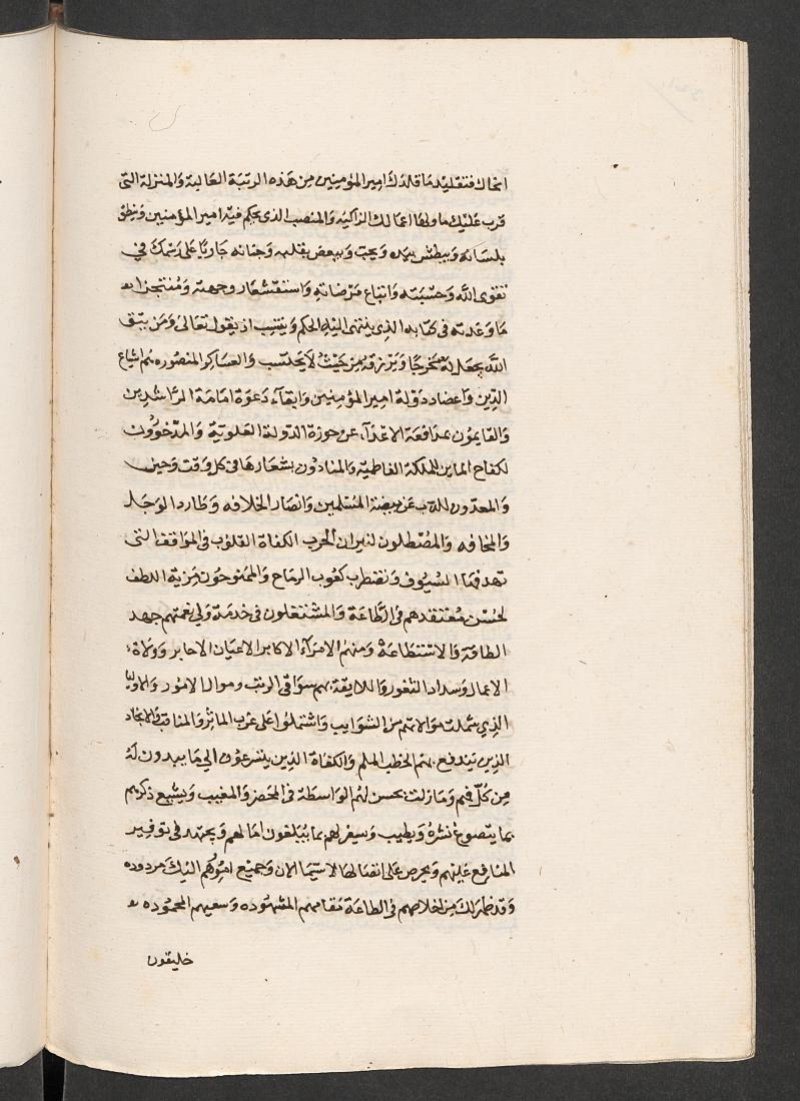 انحاك فتقليد ما قلدك امير المؤمنين من هذه الرتبة العالية والمنزلة التى
قرب عليك ماولها اعمالك الزاكيه والمنصب الذى يحكم فيه امير المؤمنين وينطق
بلسانه ويبطش بيده ويحب ويبغض بقلبه وجنانه جاريا على رسمك في
تقوى الله وخشيته واتباع مرضاته واستشعار وجهته ومنتجزا
ما وعدته فى كتابه الذي ينتهى اليه الحكم وينتسب اذ يقول تعالى ومن يتق
الله يجعل له مخرجا ويرزقه من حيث لا يحتسب والعساكر المنصوره هم اشياع
الدين واعضاد دولة امير المؤمنين وابقاء دعوة امامة الراشدين
والقايمون بمدافعة الاعداء عن حوزة الدولة العلوية والمدخرون
لكفاح المارين للملكة الفاطمية والمنادون بشعارها فى كل وقت وحين
والمعدون للذب عن بيضة المسلمين وانصار الخلافه وطارد الوجل
والمخافه والمصطلون لنيران الحرب الكفاة القلوب فى المواقف التى
تهد فيها السيوف وتضطرب كعوب الرماح والممنوحون مزية اللطف
لحسن معتقدهم فى الطاعة والمشتغلون فى خدمة ولي نعمتهم جهد
الطاقة والاستطاعة ومنهم الامرآء الاكابر الاعيان الاخاير وولاة
الاعمال وسداد الثغور واللايقة بهم سواقى الرتب وموالى الامور والاوليا
الذي سلمت موالاتهم من الشوايب واشتملوا على غرب الماثر والمناقب والانجاد
الذين يندفع بهم الخطب الملم والكفاة الذين يتسرعون الى ما يبدون له
من كل فم وما زلت تحسن لهم الواسطة فى المحضر والمغيب ويشيع ذكرهم
بما يتضوع نشره ويطيب ويسفر لهم بما يبلغون امالهم ويجتهد فى توفير
المنافع عليهم ويحرص على اتصالها لاسيما الان وجميع امورهم اليك مردوده
وقد ظهر لك من اخلاصهم فى الطاعة مقامهم المشهوده وسعيهم المحموده
خليقون